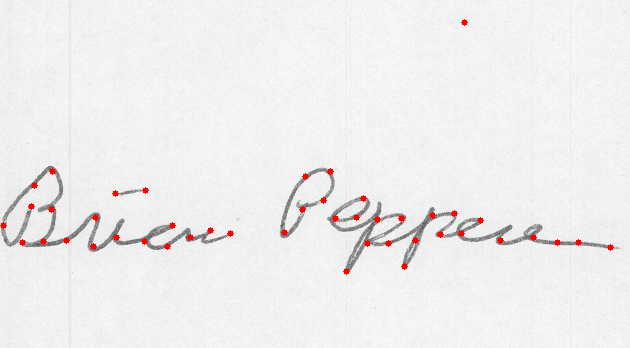 Brien Pepper